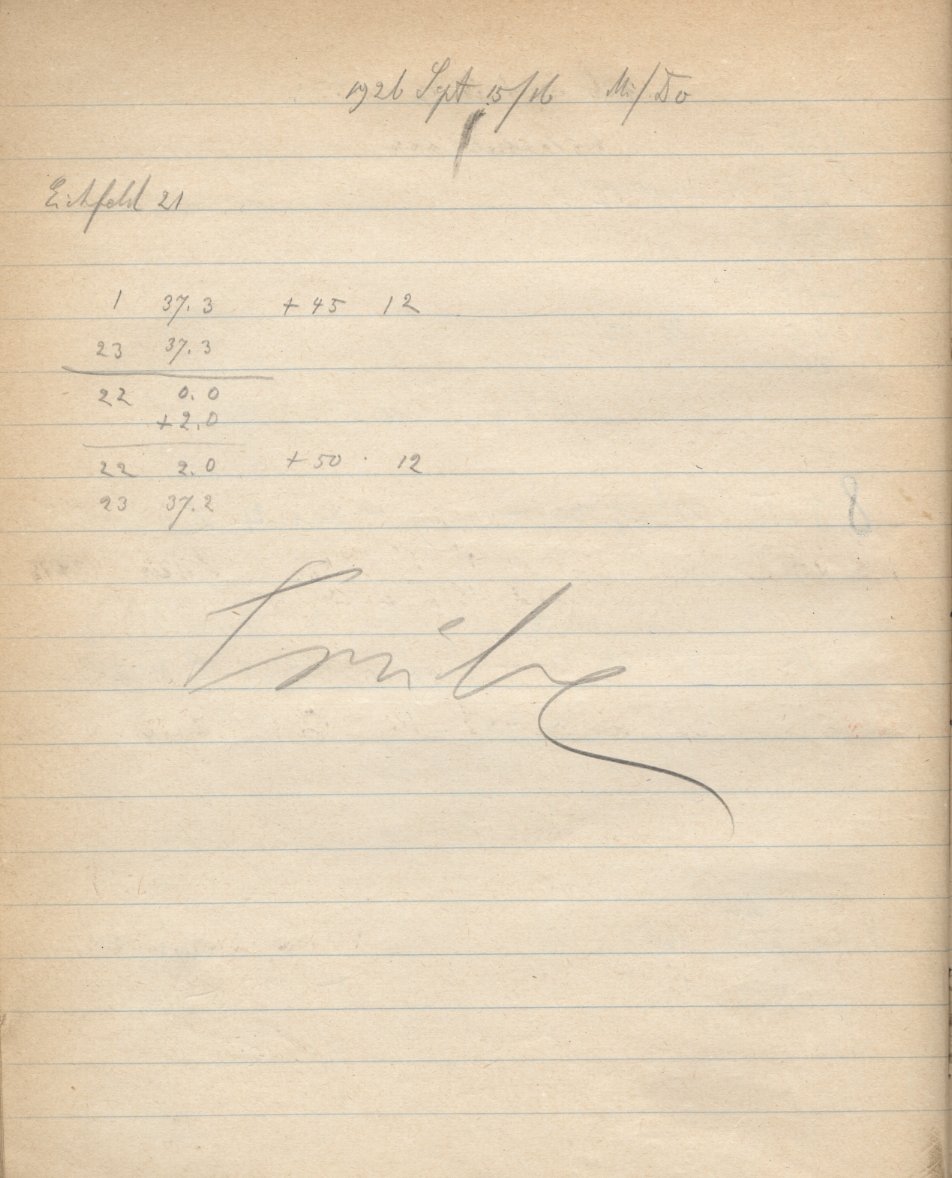 1926 Sept 15/16 Mi/Do
Eichfeld 21
1 37.3 + 45 12
23 37.3
22 0.0
+2.0
22 2.0 + 50 · 12
23 37.2
8
Trübe